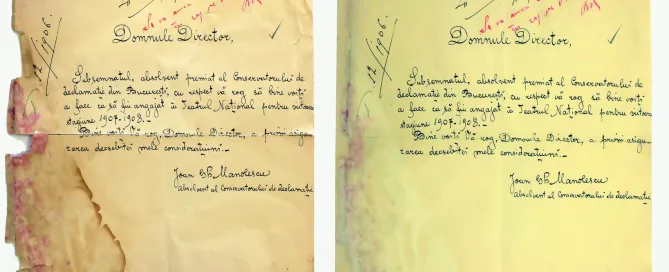 12/1906.
Domnule Director,
Subsemnatul, absolvent premiat al Conservatorului de
declamație din București, cu respect vă rog să bine voiți
a face ca să fiu angajat în Teatrul Național pentru viitoarea
stagiune 1907-1908.-
Bine voiți Vă rog, Domnule Director, a primi asigu-
rarea deosebitei mele considerațiuni.-
Ioan Gh. Manolescu
absolvent al conservatorului de declamație
12/1906.
Domnule Director,
Subsemnatul, absolvent premiat al Conservatorului de
declamație din București, cu respect vă rog să bine voiți
a face ca să fiu angajat în Teatrul Național pentru viitoarea
stagiune 1907-1908.-
Bine voiți Vă rog, Domnule Director, a primi asigu-
rarea deosebitei mele considerațiuni.-
Ioan Gh. Manolescu
absolvent al conservatorului de declamație